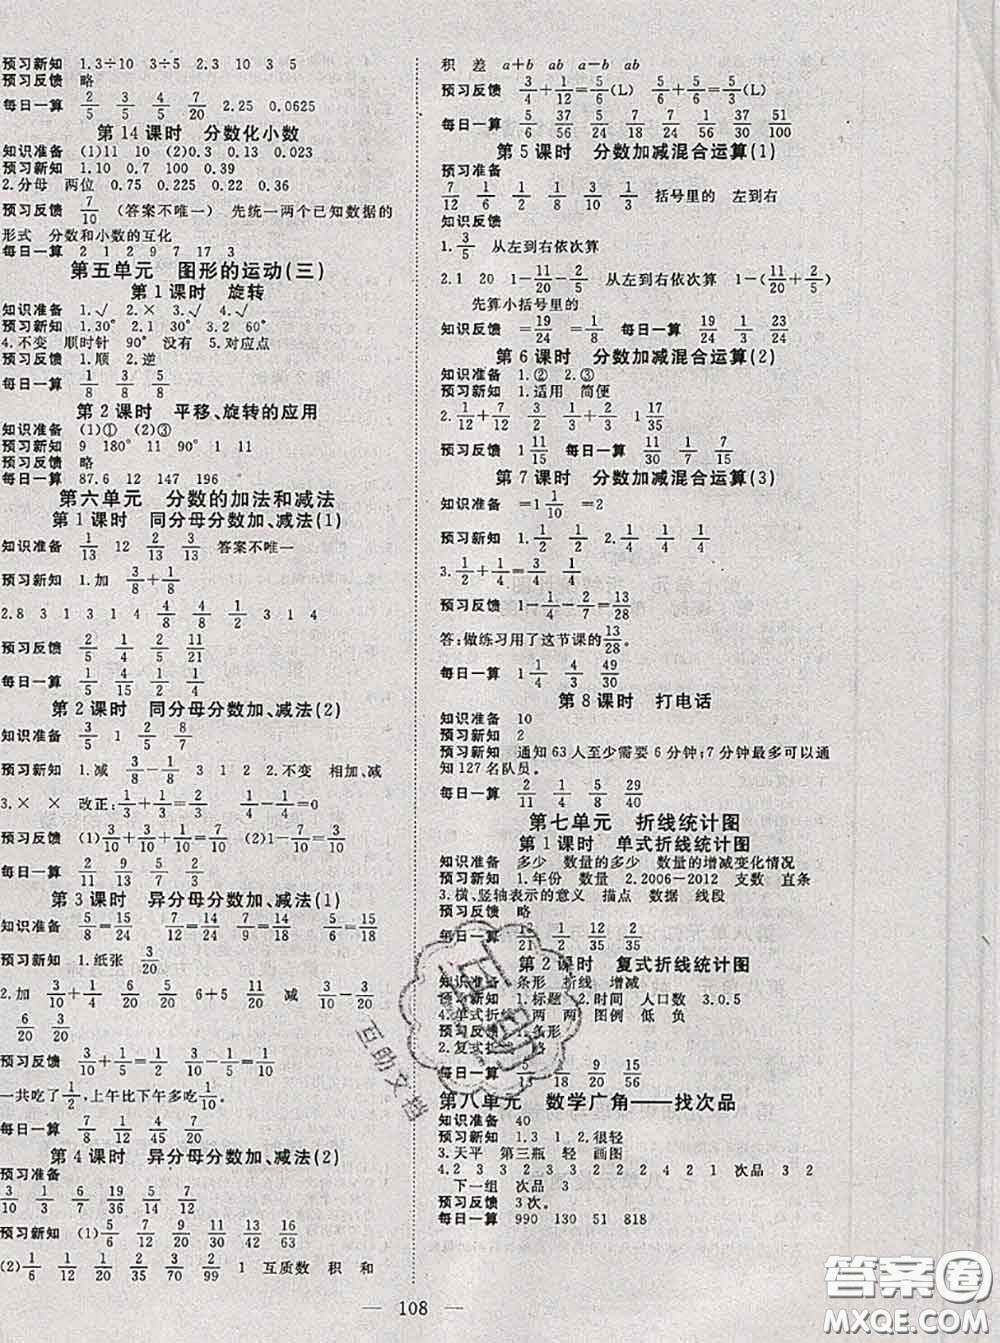 预习新知 1.3÷10 3÷5 2.3 10 3 5
预习反馈 略
每日一算 2/5 4/5 3/4 7/20 2.25 0.0625
第14课时 分数化小数
知识准备 (1)11 10 (2)0.3 0.13 0.023
预习新知 1.10 0.7 100 0.39
2.分母 两位 0.75 0.225 0.38 0.36
预习反馈 7/10 (答案不唯一) 先统一两个已知数据的
形式 分数和小数的互化
每日一算 2 1 2 9 7 17 3
第五单元 图形的运动(三)
第1课时 旋转
知识准备 1.√ 2.× 3.√ 4.√
预习新知 1.30° 2.10° 30° 3.2 60°
4.不变 顺时针 90° 没有 5.对应点
预习反馈 1.顺 2.逆
每日一算 1/8 3/8 5/8
第2课时 平移、旋转的应用
知识准备 (1)① (2)③
预习新知 9 180° 11 90° 1 11
预习反馈 略
每日一算 87.6 12 147 196
第六单元 分数的加法和减法
第1课时 同分母分数加、减法(1)
知识准备 1/13 12 2/13 3/13 答案不唯一
预习新知 1.加 3/8+1/8
2.8 3 1 3 1 4 4/8 4/8 1/2 3 1 4
预习反馈 2/5 1/4 2/15 11/21
每日一算 1/5 4/15 1/4 2/5
第2课时 同分母分数加、减法(2)
知识准备 3/5 1 2/5 8/7
预习新知 1.减 3/8-1/8 3 1 2 2.不变 相加、减
3.× × 改正:1/3+1/3=2/3 1/4-1/4=0
预习反馈 (1)3/10+1/10=4/10 (2)1-1/10=9/10
每日一算 1/4 1/3 4/5 2/3
第3课时 异分母分数加、减法(1)
知识准备 5/8=15/24 7/12=14/24 5/6=15/18 5/6=15/18
预习新知 1.纸张 3/20
2.加 3/10+1/4 6/20 5/20 6+5 11/20 减 3/10-3/20
6/20 3/20 3/20
预习反馈 3/10+1/5=1/2 3/10-1/5=1/10
一共吃了1/2,上午比下午多吃了1/10。
每日一算 7/8 1/12 9/20 2/15
第4课时 异分母分数加、减法(2)
预习准备
3/10 1/3 6/7 19/56 5/14 15/16
预习新知 (1)5/6 7/12 9/20 11/30 13/42
(2)1/6 1/12 1/20 35/72 20/99 1 互质数 积 和
积 差 a+b ab a-b ab
预习反馈 3/4+1/12=5/6(L) 5/6+5/6=5/3(L)
每日一算 5/6 37/56 5/24 7/30 37/56 51/100
第5课时 分数加减混合运算(1)
预习准备
7/12 1/6 1/12 1/2 1/4 括号里的 左到右
知识反馈
1.3/5 从左到右依次算
2.1 20 1-11/20-2/5 从左到右依次算 1-(11/20+2/5)
先算小括号里的
知识反馈 =19/24 =1/8 每日一算 19/24 1/3 23/24
第6课时 分数加减混合运算(2)
知识准备 1.② 2.③
预习新知 1.适用 简便
2.1/12+7/12 3/2 4/35+1/35 1 17/35
预习反馈 1 11/15 每日一算 11/30 1/7 5/15
第7课时 分数加减混合运算(3)
知识准备 =1 1/10 =2
预习新知 1.1/2 1/2 2.1/4 1/4
3.1/2+1/4=3/4
预习反馈 1-1/4-2/7=13/28
答:做练习用了这节课的13/28。
每日一算 1 1/4 3/4 49/30
第8课时 打电话
知识准备 10
预习新知 2
预习新知 通知63人至少需要6分钟;7分钟最多可以通
知127名队员。
每日一算 2/11 1/4 5/8 29/40
第七单元 折线统计图
第1课时 单式折线统计图
知识准备 多少 数量的多少 数量的增减变化情况
预习新知 1.年份 数量 2.2006-2012 支数 直条
3.横、竖轴表示的意义 描点 数据 线段
预习反馈 略
每日一算 1/12 13/15 2/21 1/35
第2课时 复式折线统计图
知识准备 条形 折线 增减
预习新知 1.标题 2.时间 人口数 3.0.5
4.单式折线 两 两 图例 低 负
预习反馈 1.条形
2.复式折线 略
每日一算 7/12 5/18 9/20 15/56
第八单元 数学广角——找次品
知识准备 40
预习新知 1.3 1 2.很轻
3.天平 第三瓶 轻 画图
4.2 3 3 2 3 2 2 2 4 2 1 次品 3 2
下一组 次品 3
预习反馈 3次。
每日一算 990 130 51 818
108
互助文档
答案圈
MXQE.COM